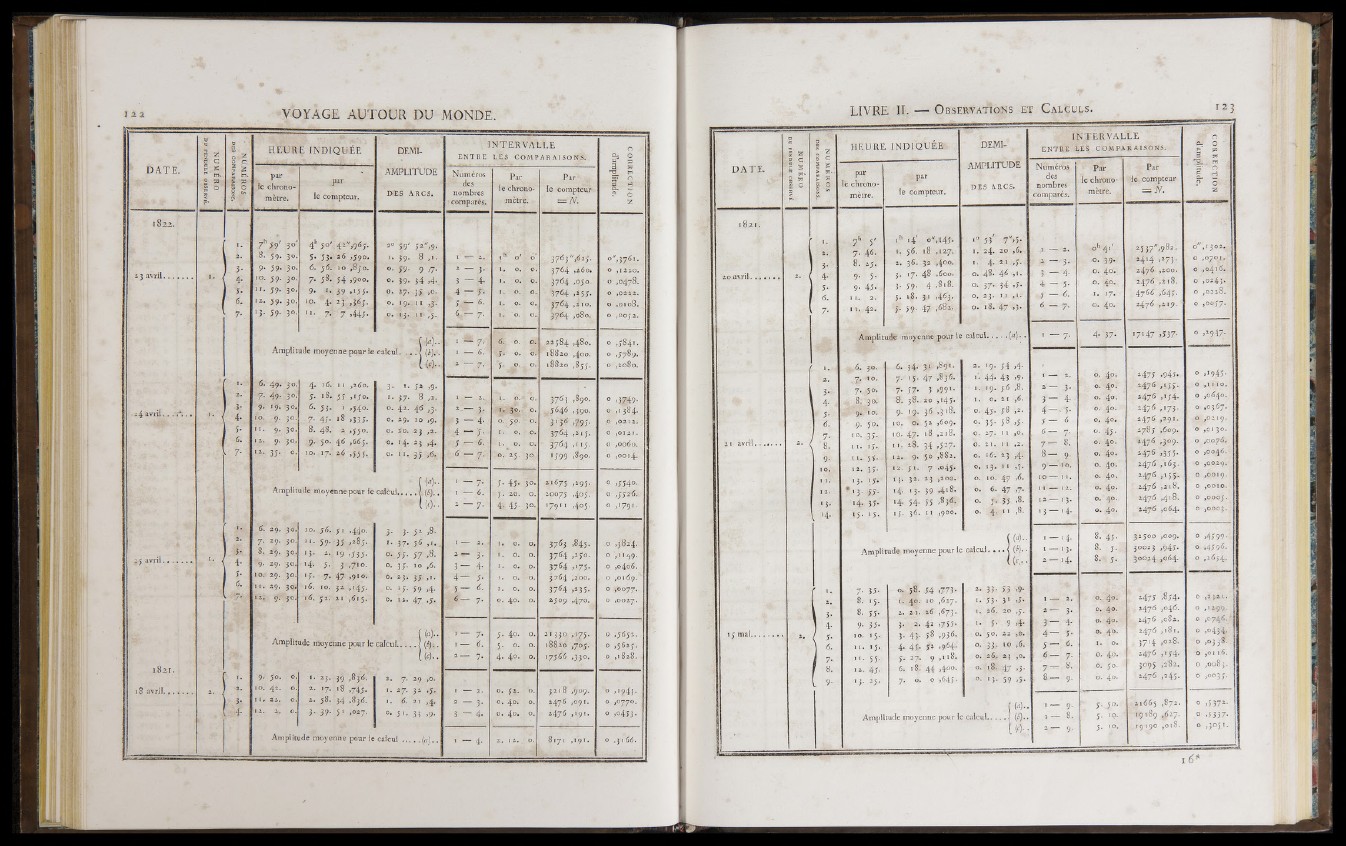 122 VOYAGE AUTOUR DU MONDE.
DATE. NUMÉRO NUMÉROS HEURE INDIQUÉE DEMI-AMPLITUDE DES ARCS. INTERVALLE ENTRE LES COMPARAISONS. CORRECTION d'amplitude.
par le chronomètre. par le compteur. Numéros des nombres comparés. Par le chronomètre. Par le compteur = N.
1822.
23 avril 1.
1. 7h 59' 30" 4h 50' 42",965. 2° 59' 52",9.
2. 8. 59. 30. 5. 53. 26 ,590. 1. 59. 8 ,1. 1 — 2. 1h 0' 0" 3763",625. 0",3761.
3. 9. 59. 30. 6. 56. 10 ,850. 0. 59. 9 ,7. 2 — 3. 1. 0. 0. 3764 ,260. 0 ,1220.
4. 10. 59. 30. 7. 58. 54 ,900. 0. 39. 54 ,4. 3 — 4. 1. 0. 0. 3764 ,050. 0 ,0478.
5. 11. 59. 30. 9. 1. 39 ,155. 0. 27. 35 ,0. 4 — 5. 1. 0. 0. 3764 ,255. 0 ,0222.
6. 12. 59. 30. 10. 4. 23 ,365. 0. 19. 11 ,5. 5 — 6. 1. 0. 0. 3764 ,210. 0 ,0108.
7. 13. 59. 30. 11. 7. 7 ,445. 0. 13. 11 ,5. 6 — 7. 1. 0. 0. 3764 ,080. 0 ,0052.
Amplitude moyenne pour le calcul
(a).. 1 — 7. 6. 0. 0. 22584 ,480. 0 ,5841.
(b).. 1 — 6. 5. 0. 0. 18820 ,400. 0 ,5789.
(c).. 2 — 7. 5. 0. 0. 18820 ,855. 0 ,2080.
24 avril 1.
1. 6. 49. 30. 4. 16. 11 ,260. 3. 1. 52 ,9.
2. 7. 49. 30. 5. 18. 55 ,150. 1. 57. 8 ,2. 1 — 2. 1. 0. 0. 3763 ,890. 0 ,3749.
3. 9. 19. 30. 6. 53. 1 ,540. 0. 42. 46 ,3. 2 — 3. 1. 30. 0. 5646 ,390. 0 ,1384.
4. 10. 9. 30. 7. 45. 18 ,335. 0. 29. 10 ,9. 3 — 4. 0. 50. 0. 3136 ,795. 0 ,0212.
5. 11. 9. 30. 8. 48. 2 ,550. 0. 20. 23 ,2. 4 — 5. 1. 0. 0. 3764 ,215. 0 ,0121.
6. 12. 9. 30. 9. 50. 46 ,665. 0. 14. 23 ,4. 5 — 6. 1. 0. 0. 3763 ,115. 0 ,0060.
7. 12. 35. 0. 10. 17. 26 ,555. 0. 11. 35 ,6. 6 — 7. 0. 25. 30. 1599 ,890. 0 ,0014.
Amplitude moyenne pour le calcul
(a).. 1 — 7. 5. 45. 30. 21675 ,295. 0 ,5540.
(b).. 1 — 6. 5. 20. 0. 20075 ,405. 0 ,5526.
(c).. 2 — 7. 4. 45. 30. 17911 ,405. 0 ,1791.
25 avril 1.
1. 6. 29. 30. 10. 56. 51 ,440. 3. 3. 52 ,8.
2. 7. 29. 30. 11. 59. 35 ,285. 1. 57. 56 ,1. 1 — 2. 1. 0. 0. 3763 ,845. 0 ,3824.
3. 8. 29. 30. 13. 2. 19 ,535. 0. 55. 57 ,8. 2 — 3. 1. 0. 0. 3764 ,250. 0 ,1149.
4. 9. 29. 30. 14. 5. 3 ,710. 0. 35. 10 ,6. 3 — 4. 1. 0. 0. 3764 ,175. 0 ,0406.
5. 10. 29. 30. 15. 7. 47 ,910. 0. 23. 35 ,1. 4 — 5. 1. 0. 0. 3764 ,200. 0 ,0169.
6. 11. 29. 30. 16. 10. 32 ,145. 0. 15. 59 ,4. 5 — 6. 1. 0. 0. 3764 ,235. 0 ,0077.
7. 12. 9. 30. 16. 52. 21 ,615. 0. 12. 47 ,5. 6 — 7. 0. 40. 0. 2509 ,470. 0 ,0027.
Amplitude moyenne pour le calcul
(a).. 1 — 7. 5. 40. 0. 21330 ,175. 0 ,5652.
(b).. 1 — 6. 5. 0. 0. 18820 ,705. 0 ,5625.
(c).. 2 — 7. 4. 40. 0. 17566 ,330. 0 ,1828.
1821.
18 avril 2.
1. 9. 50. 0. 1. 23. 39 ,836. 2. 7. 29 ,0.
2. 10. 42. 0. 2. 17. 18 ,745. 1. 27. 32 ,5. 1 — 2. 0. 52. 0. 3218 ,909. 0 ,1943.
3. 11. 22. 0. 2. 58. 34 ,836. 1. 6. 21 ,4. 2 — 3. 0. 40. 0. 2476 ,091. 0 ,0770.
4. 12. 2. 0. 3. 39. 51 ,027. 0. 51. 31 ,9. 3 — 4. 0. 40. 0. 2476 ,191. 0 ,0453.
Amplitude moyenne pour le calcul (a).. 1 — 4. 2. 12. 0. 8171 ,191. 0 ,3166.
LIVRE II. — OBSERVATIONS ET CALCULS. 123
DATE. NUMÉRO NUMÉROS HEURE INDIQUÉE DEMI-AMPLITUDE DES ARCS. INTERVALLE ENTRE LES COMPARAISONS. CORRECTION d'amplitude.
par le chronomètre. par le compteur. Numéros des nombres comparés. Par le chronomètre. Par le compteur = N.
1821.
20 avril 2.
1. 7h 5' 1h 14' 0",145. 1° 53' 7",5.
2. 7. 46. 1. 56. 18 ,127. 1. 24. 20 ,6. 1 — 2. 0h 41'. 2537",982. 0",1502.
3. 8. 25. 2. 36. 32 ,400. 1. 4. 21 ,5. 2 — 3. 0. 39. 2414 ,273. 0 ,0701.
4. 9. 5. 3. 17. 48 ,600. 0. 48. 46 ,1. 3 — 4. 0. 40. 2476 ,200. 0 ,0416.
5. 9. 45. 3. 59. 4 ,818. 0. 37. 54 ,5. 4 — 5. 0. 40. 2476 ,218. 0 ,0243.
6. 11. 2. 5. 18. 31 ,463. 0. 23. 11 ,1. 5 — 6. 1. 17. 4766 ,645. 0 ,0228.
7. 11. 42. 5. 59. 47 ,682. 0. 18. 47 ,3. 6 — 7. 0. 40. 2476 ,219. 0 ,0057.
Amplitude moyenne pour le calcul.....(a).. 1 — 7. 4. 37. 17147 ,537. 0 ,2947.
21 avril 2.
1. 6. 30. 6. 34. 31 ,891. 2. 19. 54 ,4.
2. 7. 10. 7. 15. 47 ,836. 1. 44. 43 ,9. 1 — 2. 0. 40. 2475 ,945. 0 ,1945.
3. 7. 50. 7. 57. 3 ,991. 1. 19. 56 ,8. 2 — 3. 0. 40. 2476 ,155. 0 ,1110.
4. 8. 30. 8. 38. 20 ,145. 1. 0. 21 ,6. 3 — 4. 0. 40. 2476 ,154. 0 ,0640.
5. 9. 10. 9. 19. 36 ,318. 0. 45. 58 ,2. 4 — 5. 0. 40. 2476 ,173. 0 ,0367.
6. 9. 50. 10. 0. 52 ,609. 0. 35. 58 ,5. 5 — 6. 0. 40. 2476 ,291. 0 ,0219.
7. 10. 35. 10. 47. 18 ,218. 0. 27. 11 ,0. 6 — 7. 0. 45. 2785 ,609. 0 ,0130.
8. 11. 15. 11. 28. 34 ,527. 0. 21. 11 ,2. 7 — 8. 0. 40. 2476 ,309. 0 ,0076.
9. 11. 55. 12. 9. 50 ,882. 0. 16. 23 ,4. 8 — 9. 0. 40. 2476 ,355. 0 ,0046.
10. 12. 35. 12. 51. 7 ,045. 0. 13. 11 ,5. 9 — 10. 0. 40. 2476 ,163. 0 ,0029.
11. 13. 15. 13. 32. 23 ,200. 0. 10. 47 ,6. 10 — 11. 0. 40. 2476 ,155. 0 ,0019.
12. 13. 55. 14. 13. 39 ,418. 0. 6. 47 ,7. 11 — 12. 0. 40. 2476 ,218. 0 ,0010.
13. 14. 35. 14. 54. 55 ,836. 0. 5. 35 ,8. 12 — 13. 0. 40. 2476 ,418. 0 ,0005.
14. 15. 15. 15. 36. 11 ,900. 0. 4. 11 ,8. 13 — 14. 0. 40. 2476 ,064. 0 ,0003.
Amplitude moyenne pour le calcul
(a).. 1 — 14. 8. 45. 32500 ,009. 0 ,4599.
(b).. 1 — 13. 8. 5. 30023 ,945. 0 ,4596.
(c).. 2 — 14. 8. 5. 30024 ,064. 0 ,2654.
15 mai 2.
1. 7. 35. 0. 58. 54 ,773. 2. 33. 53 ,9.
2. 8. 15. 1. 40. 10 ,627. 1. 53. 31 ,5. 1 — 2. 0. 40. 2475 ,854. 0 ,2321.
3. 8. 55. 2. 21. 26 ,673. 1. 26. 20 ,5. 2 — 3. 0. 40. 2476 ,046. 0 ,1299.
4. 9. 35. 3. 2. 42 ,755. 1. 5. 9 ,4. 3 — 4. 0. 40. 2476 ,082. 0 ,0746.
5. 10. 15. 3. 43. 58 ,936. 0. 50. 22 ,0. 4 — 5. 0. 40. 2476 ,181. 0 ,0434.
6. 11. 15. 4. 45. 52 ,964. 0. 33. 10 ,6. 5 — 6. 1. 0. 3714 ,028. 0 ,0338.
7. 11. 55. 5. 27. 9 ,118. 0. 26. 23 ,0. 6 — 7. 0. 40. 2476 ,154. 0 ,0116.
8. 12. 45. 6. 18. 44 ,400. 0. 18. 47 ,3. 7 — 8. 0. 50. 3095 ,282. 0 ,0083.
9. 13. 25. 7. 0. 0 ,645. 0. 13. 59 ,5. 8 — 9. 0. 40. 2476 ,245. 0 ,0035.
Amplitude moyenne pour le calcul
(a).. 1 — 9. 5. 50. 21665 ,872. 0 ,5372.
(b).. 1 — 8. 5. 10. 19189 ,627. 0 ,5337.
(c).. 2 — 9. 5. 10. 19190 ,018. 0 ,3051.
16*